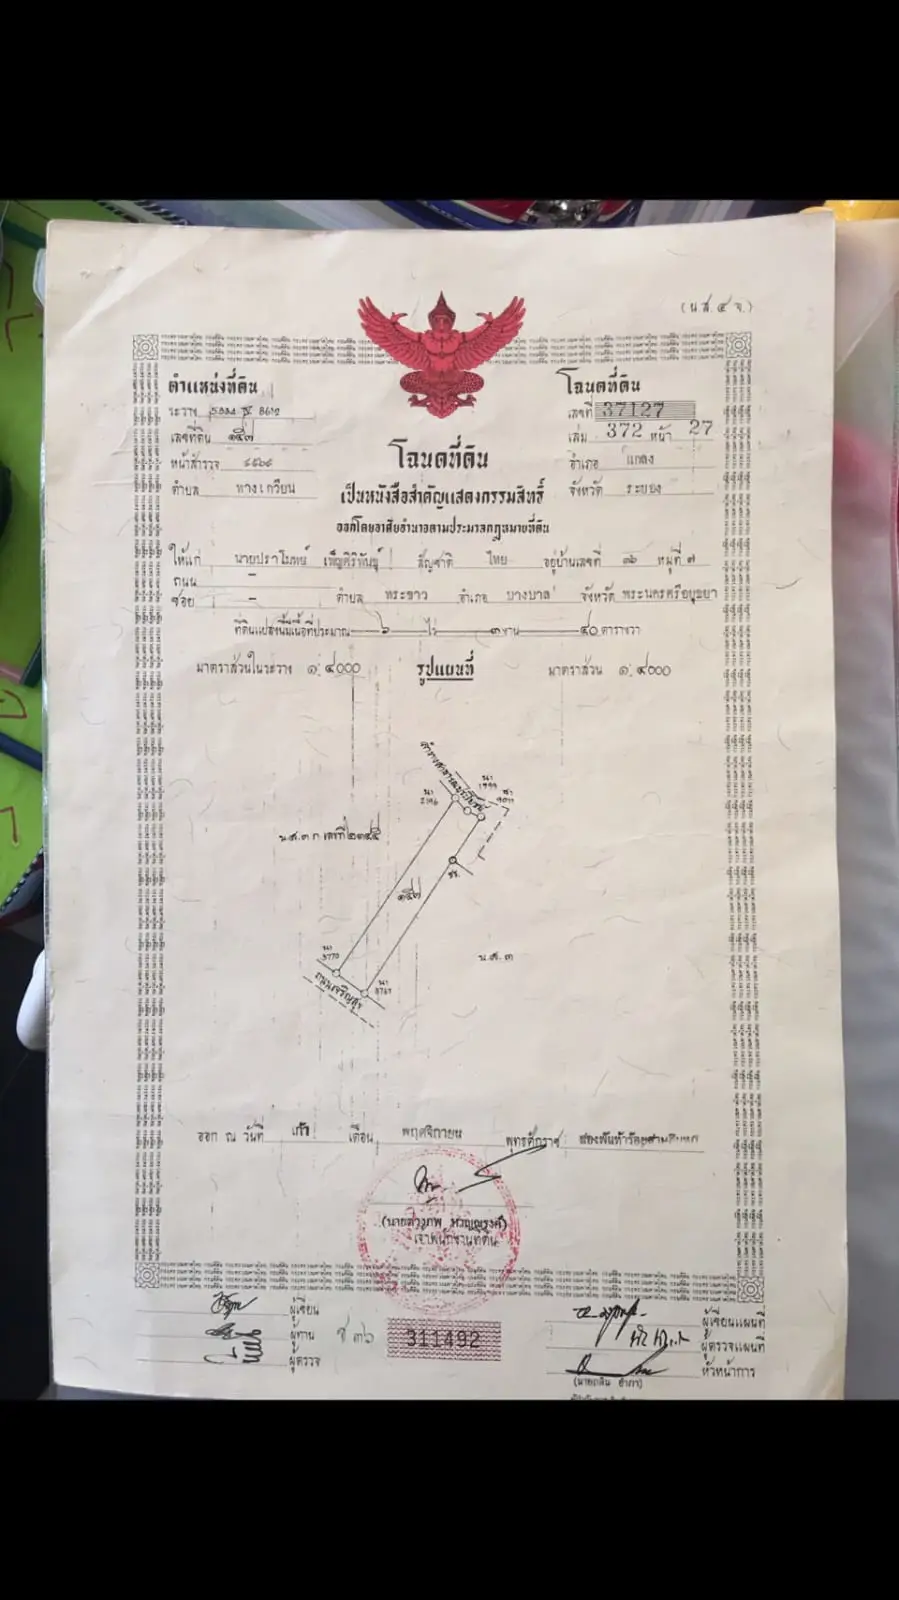 (น.ส.๔ จ.)
ตำแหน่งที่ดิน
ระวาง
เลขที่ดิน ๑๕๗
หน้าสำรวจ
ตำบล ทางเกวียน
โฉนดที่ดิน
เลขที่ 37127
เล่ม 372 หน้า 27
อำเภอ แกลง
จังหวัด ระยอง
โฉนดที่ดิน
เป็นหนังสือสำคัญแสดงกรรมสิทธิ์
ออกโดยอาศัยอำนาจตามประมวลกฎหมายที่ดิน
ให้แก่ นายปราโมทย์ เพ็ญศิริพันธุ์ สัญชาติ ไทย อยู่บ้านเลขที่ ๓๖ หมู่ที่ ๗
ถนน –
ซอย – ตำบล พระขาว อำเภอ บางบาล จังหวัด พระนครศรีอยุธยา
ที่ดินแปลงนี้มีเนื้อที่ประมาณ ๖ ไร่ ๓ งาน ๔๐ ตารางวา
มาตราส่วนในระวาง ๑:๔๐๐๐ รูปแผนที่ มาตราส่วน ๑:๔๐๐๐
น.ส.๓ ก เลขที่
๑๕๗
น.ส.๓
3770
3767
ถนนเจริญสุข
ออก ณ วันที่ เก้า เดือน พฤศจิกายน พุทธศักราช สองพันห้าร้อยสามสิบหก
เจ้าพนักงานที่ดิน
ผู้เขียน
ผู้ทาน
ผู้ตรวจ
ช ๓๖ 311492
ผู้เขียนแผนที่
ผู้ตรวจแผนที่
หัวหน้าการ